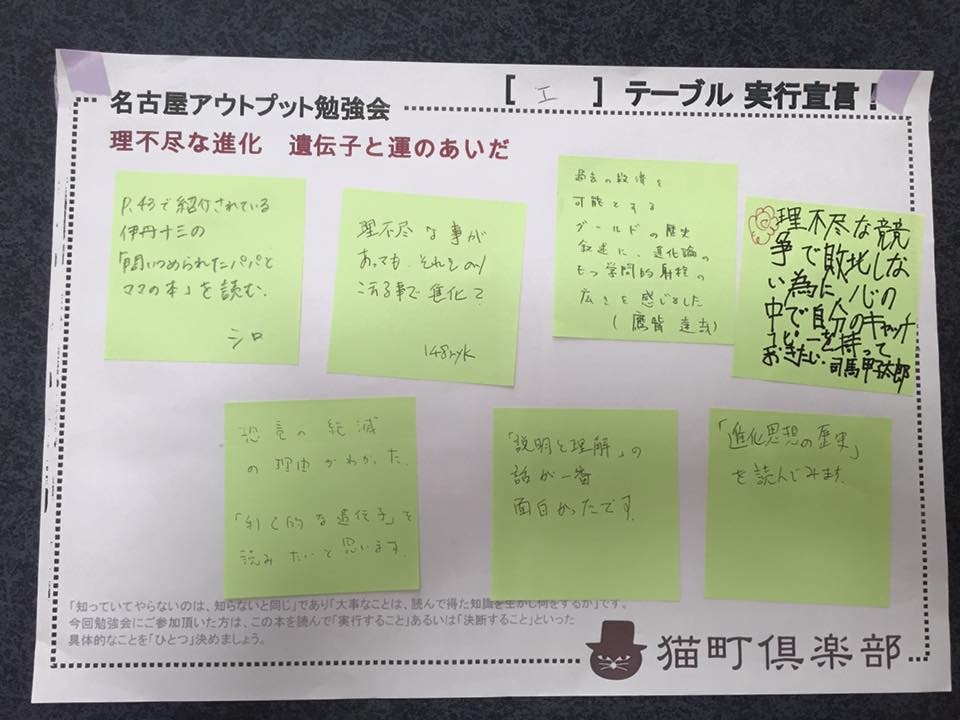 [ エ ] テーブル 実行宣言!
名古屋アウトプット勉強会
理不尽な進化 遺伝子と運のあいだ
P.43で紹介されている
伊丹十三の
「問いつめられたパパと
ママの本」を読む.
シロ
理不尽な事が
あっても、それをのり
こえる事で進化?
148ryk
過去の救済を
可能とする
グールドの歴史
叙述に、進化論の
もつ学問的射程の
広さを感じました
理不尽な競
争で敗北しな
い為に心の
中で自分のキャッチ
コピーを持って
おきたい。司馬甲太郎
恐竜の絶滅
の理由がわかった.
「利己的な遺伝子」を
読みたいと思います.
「説明と理解」の
話が一番
面白かったです.
「進化思想の歴史」
を読んでみます.
「知っていてやらないのは、知らないと同じ」であり「大事なことは、読んで得た知識を生かし何をするか」です。
今回勉強会にご参加頂いた方は、この本を読んで「実行すること」あるいは「決断すること」といった
具体的なことを「ひとつ」決めましょう。
猫町倶楽部